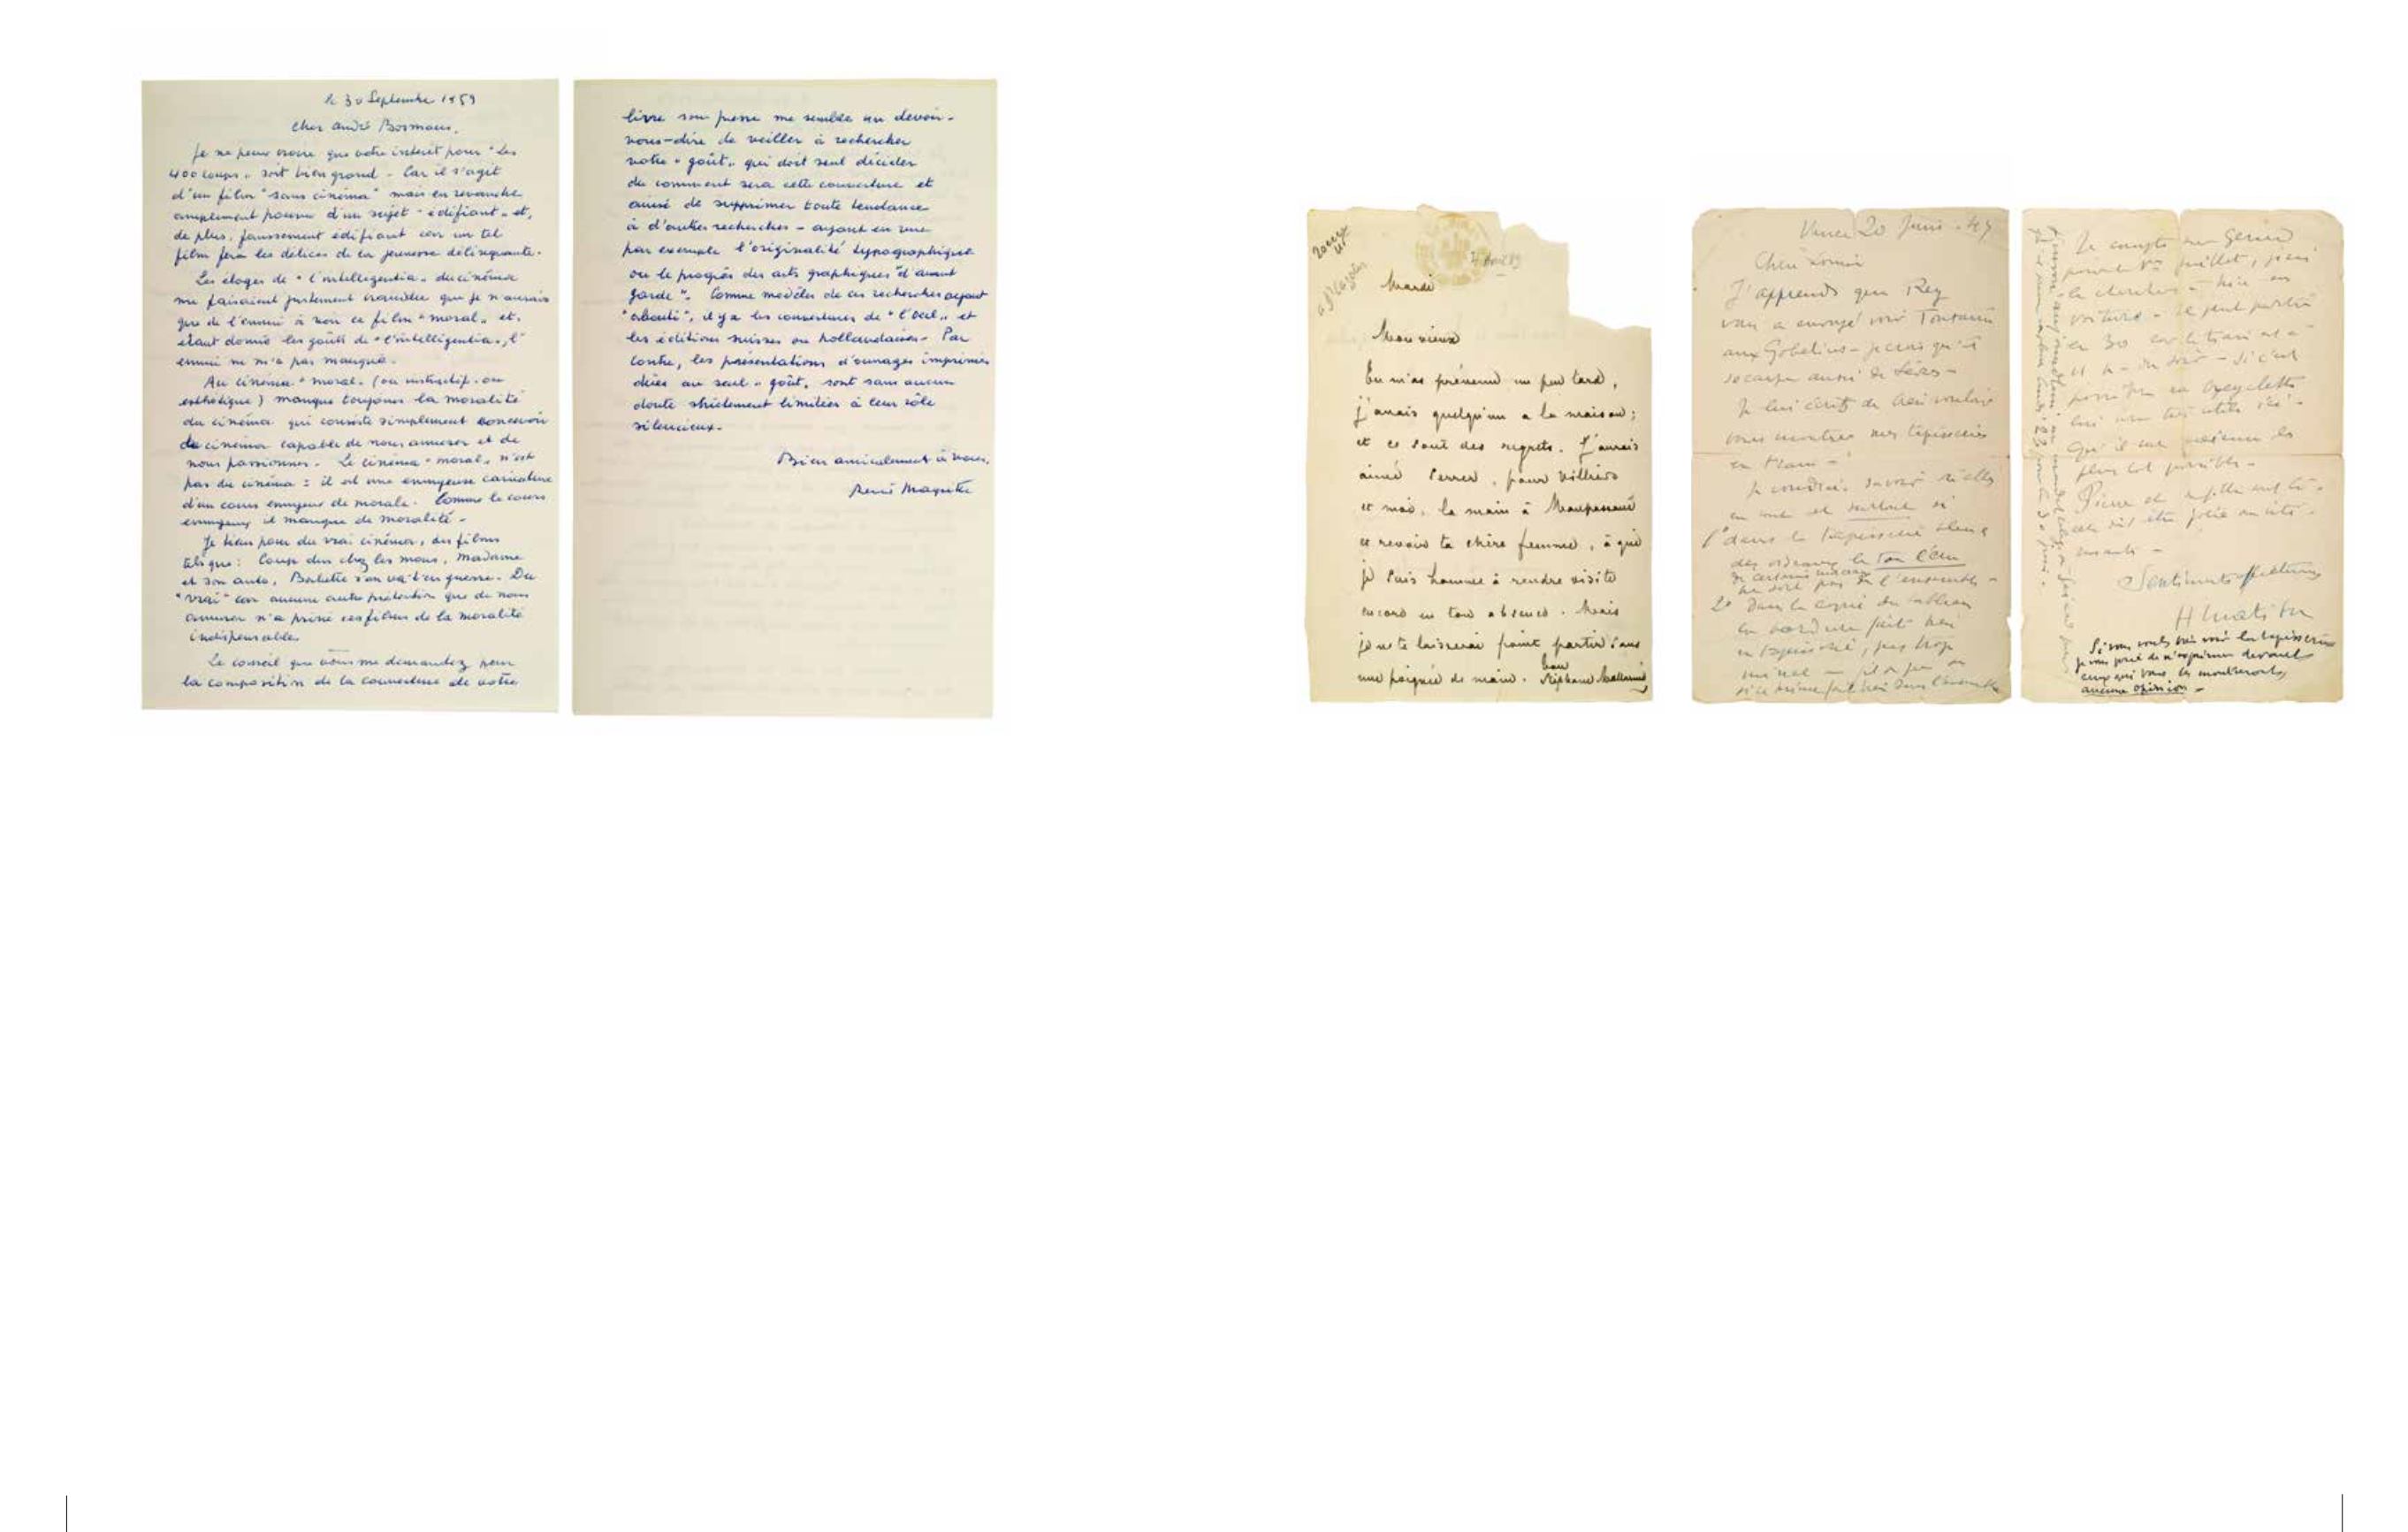 le 30 Septembre 1959
Cher André Bosmans,
Je ne peux croire que votre intérêt pour "Les
400 coups" soit bien grand - Car il s'agit
d'un film "sans cinéma" mais en revanche
amplement pourvu d'un sujet "édifiant" et,
de plus, faussement édifiant car un tel
film fera les délices de la jeunesse délinquante.
Les éloges de "l'intelligentia" du cinéma
me faisaient justement craindre que je n'aurais
que de l'ennui à voir ce film "moral" et,
étant donné les goûts de "l'intelligentia", l'
ennui ne m'a pas manqué.
Au cinéma "moral" (ou instructif ou
esthétique) manque toujours la moralité
du cinéma qui consiste simplement concevoir
du cinéma capable de nous amuser et de
nous passionner. Le cinéma "moral" n'est
pas du cinéma : il est une ennuyeuse caricature
d'un cours ennuyeux de morale. Comme le cours
ennuyeux il manque de moralité -
Je tiens pour du vrai cinéma, des films
tels que : Coup dur chez les mous, Madame
et son auto, Babette s'en va-t'en guerre. Du
"vrai" car aucune autre prétention que de nous
amuser n'a privé ces films de la moralité
indispensable.
Le conseil que vous me demandez pour
la composition de la couverture de votre
livre sous presse me semble un devoir-
vous-dire de veiller à rechercher
votre "goût" qui doit seul décider
du comment sera cette couverture et
aussi de supprimer toute tendance
à d'autres recherches - ayant en vue
par exemple l'originalité typographique
ou le progrès des arts graphiques "d'avant
garde". Comme modèles de ces recherches ayant
"abouti", il y a les couvertures de "l'oeil" et
les éditions suisses ou hollandaises - Par
contre, les présentations d'ouvrages imprimés
dûes au seul "goût" sont sans aucun
doute strictement limitées à leur rôle
silencieux.
Bien amicalement à vous,
René Magritte
Mardi
Mon vieux
Tu m'as prévenu un peu tard,
j'avais quelqu'un a la maison;
et ce sont des regrets. J'aurais
aimé serrer, pour Villiers
et moi, la main à Maupassant
et revoir ta chère femme, à qui
je suis homme à rendre visite
encore en ton absence. Mais
je ne te laisserai point partir sans
une poignée de main. Ton
Stéphane Mallarmé
Vence 20 Juin - 45
J'apprends que Rey
vous a envoyé voir Toussaint
aux Gobelins - je crois qu'il
s'occupe aussi de
Je lui écrit de bien vouloir
vous montrer mes tapisseries
en train -
Je voudrais savoir si elles
en sont et surtout si
1° dans la tapisserie bleue
le ton bleu
de certains
ne sort pas de l'ensemble -
2° Dans la copie du tableau
la bordure fait bien
en tapisserie, pas trop
Je compte sur Gérard
juillet, j'irai
le chercher à Nice en
voiture - il peut partir
si c'est
possible sa bicyclette
lui sera très utile ici -
plus tôt possible -
Sentiments affectueux
H Matisse
Si vous voulez bien voir les tapisseries
je vous prie de n'exprimer devant
ceux qui vous les montreront
aucune opinion -